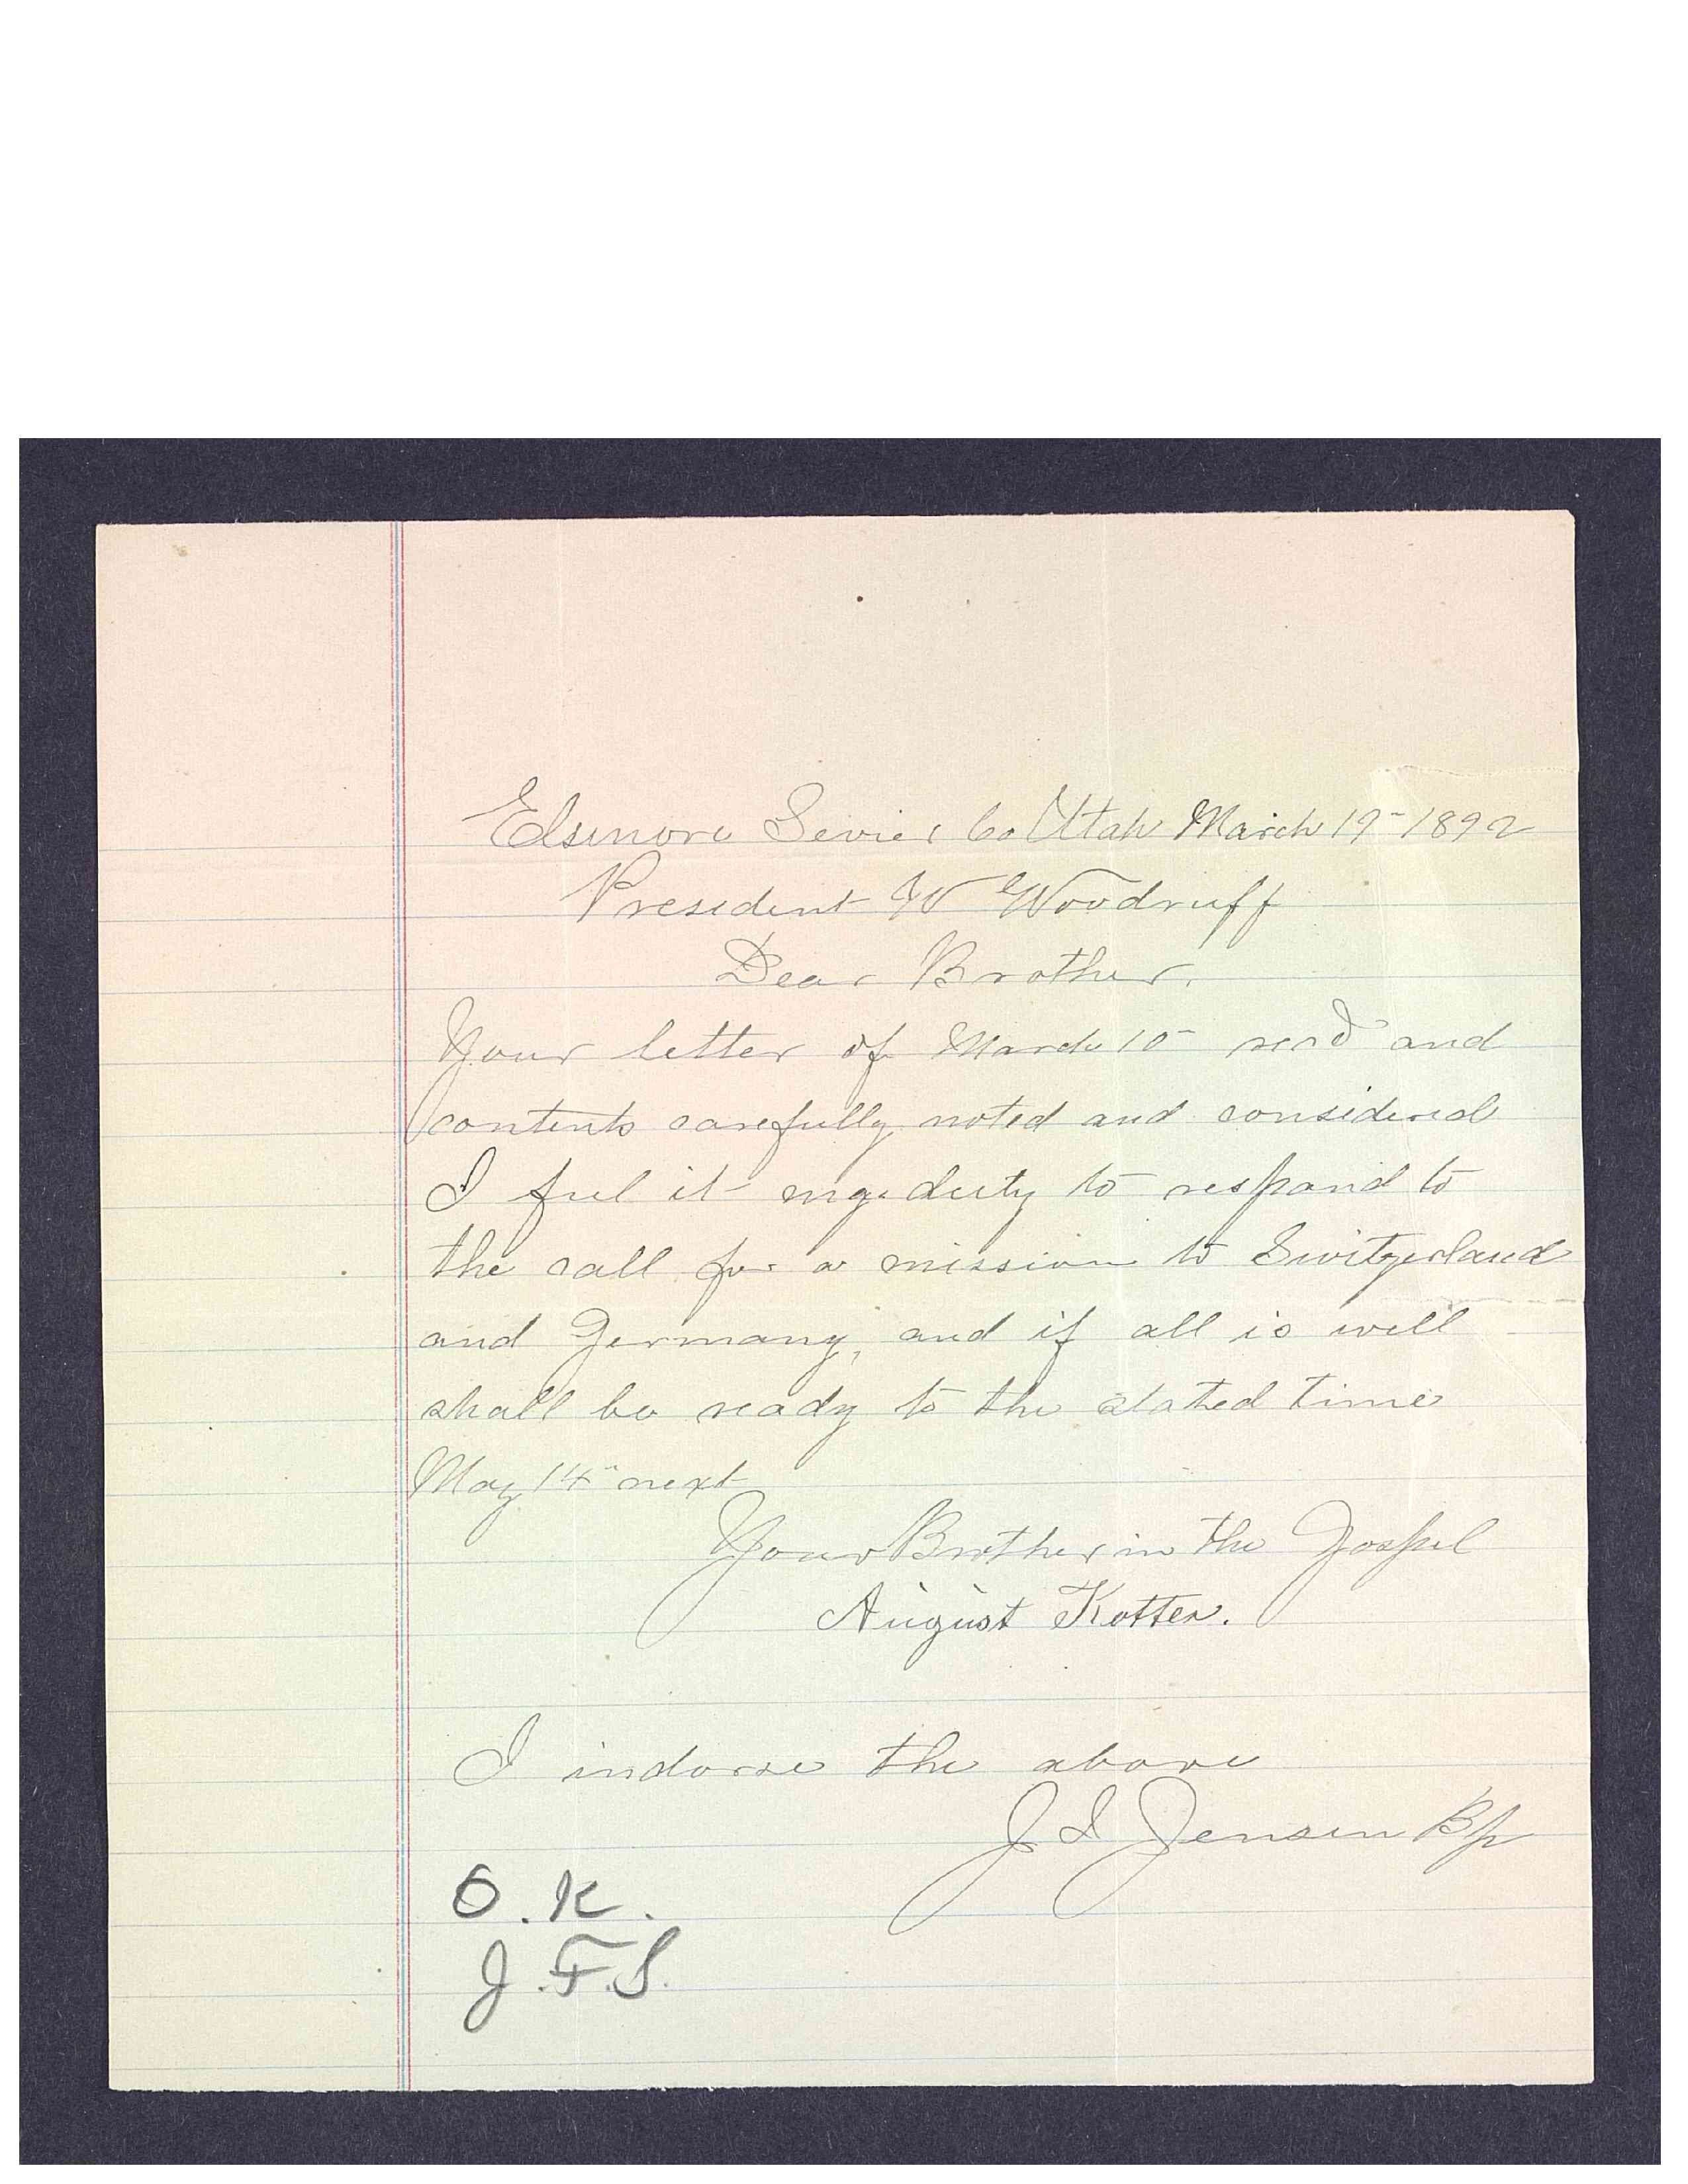 Elsinore Sevier Co Utah March 19- 1892
President W Woodruff
Dear Brother.
Your letter of March 10- recd and
contents carefully noted and considered
I feel it my duty to respond to
the call for a mission to Switzerland
and Germany, and if all is well
shall be ready to the stated time
May 14" next
Your Brother in the Gospel
August Kotter.
I indorse the above
J I Jensen Bp
O.K.
J.F.S.